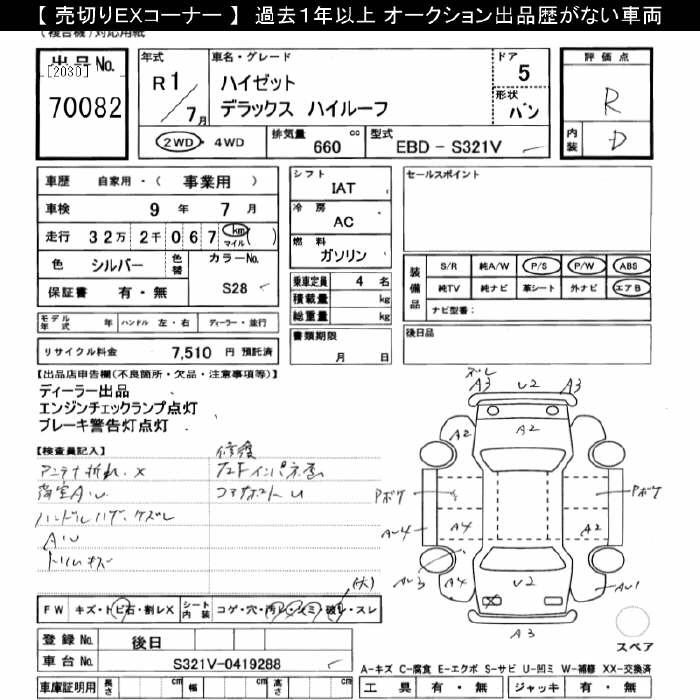 【 売切りEXコーナー 】 過去1年以上 オークション出品歴がない車両
(複合機)対応用紙
出品No.
[2030]
70082
年式
R1/7月
車名・グレード
ハイゼット
デラックス ハイルーフ
ドア 5
形状 バン
評価点
R
内装 D
2WD ・ 4WD
排気量 660 cc
型式 EBD - S321V
車歴 自家用・( 事業用 )
車検 9 年 7 月
走行 32万 2千 067 km マイル ( )
色 シルバー 色替 カラーNo. S28
保証書 有・無
モデル年式 年 ハンドル 左・右 ディーラー・並行
リサイクル料金 7,510 円 預託済
シフト IAT
冷房 AC
燃料 ガソリン
乗車定員 4 名
積載量 kg
総重量 kg
書類期限
月 日
セールスポイント
装備品
S/R 純A/W P/S P/W ABS
純TV 純ナビ 革シート 外ナビ エアB
ナビ型番:
後日品
【出品店申告欄(不良箇所・欠品・注意事項等)】
ディーラー出品
エンジンチェックランプ点灯
ブレーキ警告灯点灯
【検査員記入】
アンテナ折れ X
荷室A、U
ハンドルハゲ、ケズレ
A、U
トリムキズ
修復
コアサポートU
ズレ
A3 U2 A3
A2 A2
Pボケ Pボケ
A4 A2
A4
U2
A3
(大)
FW キズ・トビ石・割レX シート内装 コゲ・穴・汚レ・シミ・破レ・スレ
登録No. 後日
車台No. S321V-0419288
車庫証明用 長さ cm 幅 cm 高さ cm
スペア
A-キズ C-腐食 E-エクボ S-サビ U-凹ミ W-補修 XX-交換済
工具 有・無 ジャッキ 有・無